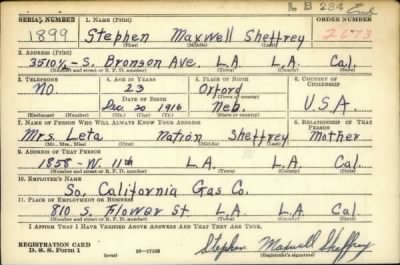 L B 234
SERIAL NUMBER 1. NAME (Print) ORDER NUMBER
1899 Stephen Maxwell Sheffrey 2673
(First) (Middle) (Last)
2. ADDRESS (Print)
3510½-S. Bronson Ave. L.A. L.A. Cal.
(Number and street or R. F. D. number) (Town) (County) (State)
3. TELEPHONE 4. AGE IN YEARS 5. PLACE OF BIRTH 6. COUNTRY OF CITIZENSHIP
NO. 23 Orford U.S.A.
DATE OF BIRTH (Town)
Dec. 20 1916 Neb.
(Exchange) (Number) (Mo.) (Day) (Yr.) (State or country)
7. NAME OF PERSON WHO WILL ALWAYS KNOW YOUR ADDRESS 8. RELATIONSHIP OF THAT PERSON
Mrs. Leta Nation Sheffrey Mother
(Mr., Mrs., Miss) (First) (Middle) (Last)
9. ADDRESS OF THAT PERSON
1858-W. 11th L.A. L.A. Cal
(Number and street or R. F. D. number) (Town) (County) (State)
10. EMPLOYER'S NAME
So. California Gas Co.
11. PLACE OF EMPLOYMENT OR BUSINESS
810 S. Flower St. L.A. L.A. Cal
(Number and street or R. F. D. number) (Town) (County) (State)
I AFFIRM THAT I HAVE VERIFIED ABOVE ANSWERS AND THAT THEY ARE TRUE.
REGISTRATION CARD
D. S. S. Form 1 (over) 16—17105 Stephen Maxwell Sheffrey
(Registrant's signature)